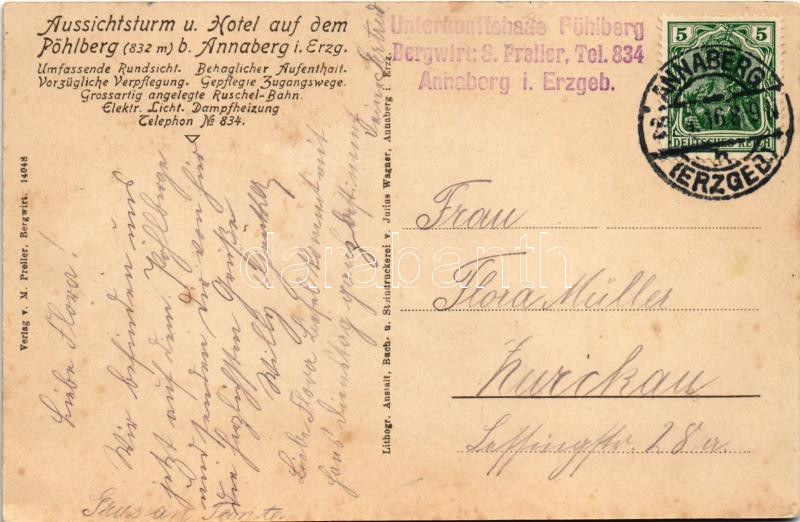 Aussichtsturm u. Hotel auf dem
Pöhlberg (832 m) b. Annaberg i. Erzg.
Umfassende Rundsicht. Behaglicher Aufenthalt.
Vorzügliche Verpflegung. Gepflegte Zugangswege.
Grossartig angelegte Ruschel-Bahn.
Elektr. Licht. Dampfheizung
Telephon № 834.
Unterkunftshaus Pöhlberg
Bergwirt: S. Preller, Tel. 834
Annaberg i. Erzgeb.
5 5
DEUTSCHES REICH
ANNABERG
(ERZGEB)
Verlag v. M. Preller, Bergwirt. 14048
Liebe Flora!
Wir befinden uns
jetzt auf dem Pöhlberge
und senden dir von hier
die herzlichsten Grüße
Willy
Liebe Flora kommt mit
Lithogr. Anstalt, Buch- u. Steindruckerei v. Julius Wagner, Annaberg i. Erzg.
Frau
Flora Müller
Zwickau
Lessingstr. 28a.
darabanth